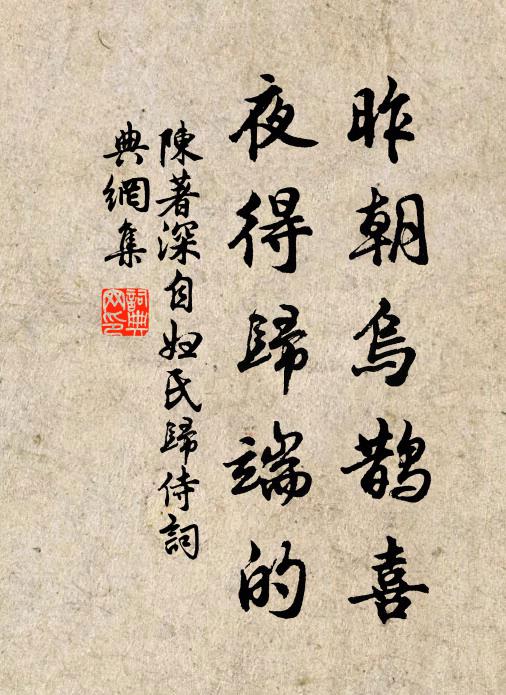 昨朝烏鵲喜
夜得歸端的
陳著深自妞氏歸侍詞
典網集
詞典
网印